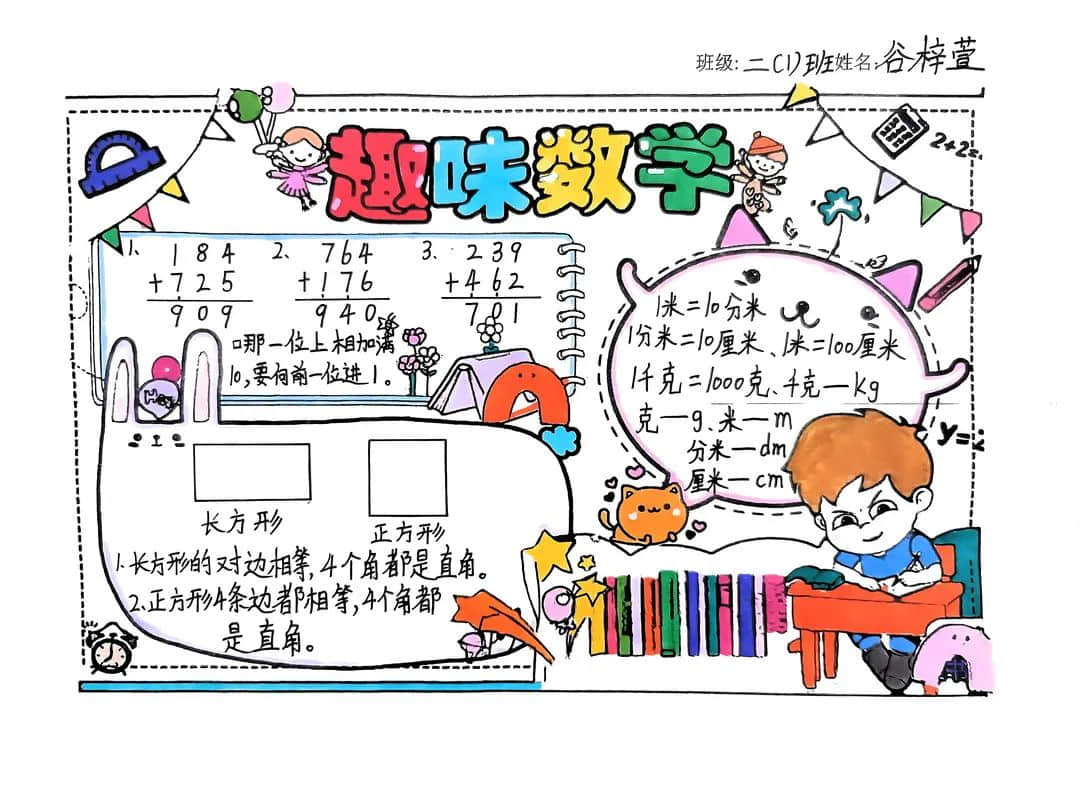 班级: 二(1)班 姓名: 谷梓萱
趣味数学
2+2=
1. 184
+725
909
2. 764
+176
940
3. 239
+462
701
哪一位上相加满
10,要向前一位进1。
1米=10分米
1分米=10厘米、1米=100厘米
1千克=1000克、千克—Kg
克—g、米—m
分米—dm
厘米—cm
y=
长方形
正方形
1.长方形的对边相等,4个角都是直角。
2.正方形4条边都相等,4个角都
是直角。